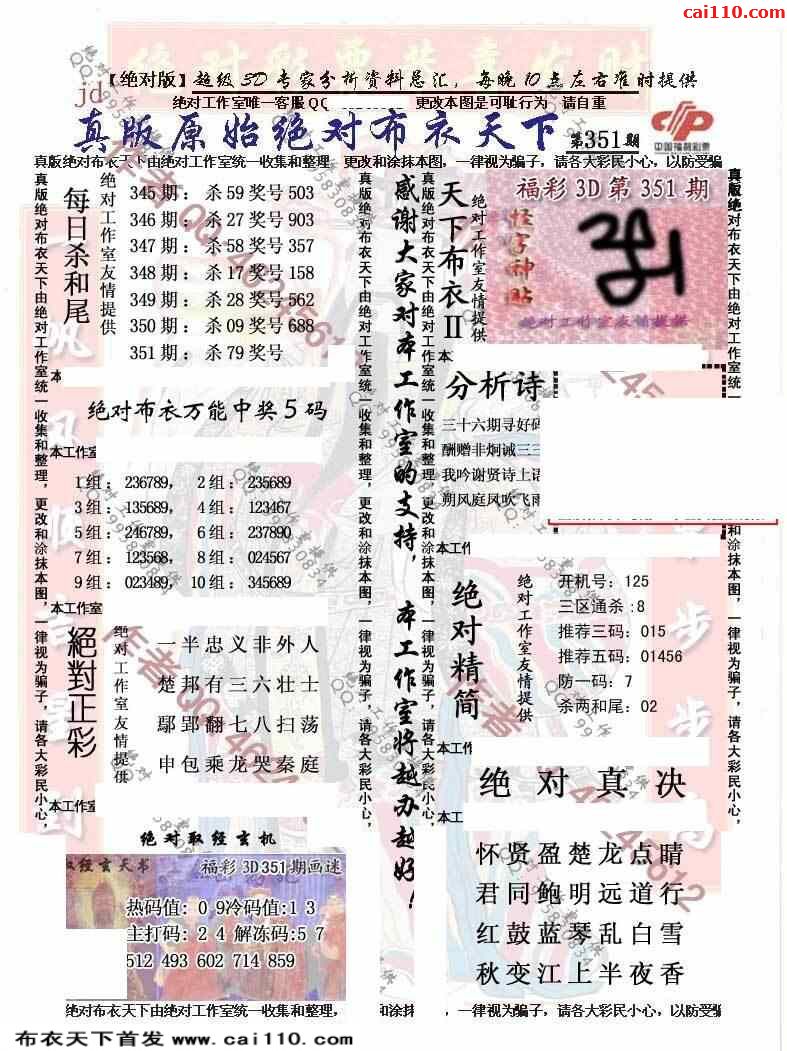 cai110.com
【绝对版】超级3D专家分析资料总汇，每晚10点左右准时提供
jd
绝对工作室唯一客服QQ 更改本图是可耻行为 请自重
真版原始绝对布衣天下 第351期
中国福利彩票
真版绝对布衣天下由绝对工作室统一收集和整理，更改和涂抹本图，一律视为骗子，请各大彩民小心，以防受骗
真版绝对布衣天下由绝对工作室统一收集和整理，更改和涂抹本图，一律视为骗子，请各大彩民小心，
每日杀和尾
绝对工作室友情提供
345期：杀59奖号503
346期：杀27奖号903
347期：杀58奖号357
348期：杀17奖号158
349期：杀28奖号562
350期：杀09奖号688
351期：杀79奖号
本
绝对布衣万能中奖5码
本工作室
1组：236789， 2组：235689
3组：135689， 4组：123467
5组：246789， 6组：237890
7组：123568， 8组：024567
9组：023489， 10组：345689
本工作室
絕對正彩
绝对工作室友情提供
一半忠义非外人
楚邦有三六壮士
鄢郢翻七八扫荡
申包乘龙哭秦庭
本工作室
绝对取经玄机
取经玄天书 福彩3D351期画迷
热码值：0 9冷码值:1 3
主打码：2 4 解冻码:5 7
512 493 602 714 859
真版绝对布衣天下由绝对工作室统一收集和整理，更改和涂抹本图，一律视为骗子，请各大彩民小心，
感谢大家对本工作室的支持，本工作室将越办越好！
真版绝对布衣天下由绝对工作室统一收集和整理，更改和涂抹本图，一律视为骗子，请各大彩民小心，
天下布衣II
绝对工作室友情提供
福彩3D第351期
怪字神贴
绝对工作室友情提供
本
分析诗
三十六期寻好码
酬赠非炯诫三三
我吟谢贤诗上语
朔风庭凤吹飞雨
本工作
绝对精简
绝对工作室友情提供
开机号：125
三区通杀:8
推荐三码：015
推荐五码：01456
防一码：7
杀两和尾：02
本工作
绝对真决
本工作
怀贤盈楚龙点晴
君同鲍明远道行
红鼓蓝琴乱白雪
秋变江上半夜香
真版绝对布衣天下由绝对工作室统一
和涂抹本图，一律视为骗子，请各大彩民小心，
绝对布衣天下由绝对工作室统一收集和整理， 和涂抹 ，一律视为骗子，请各大彩民小心，以防受骗
布衣天下首发 www.cai110.com